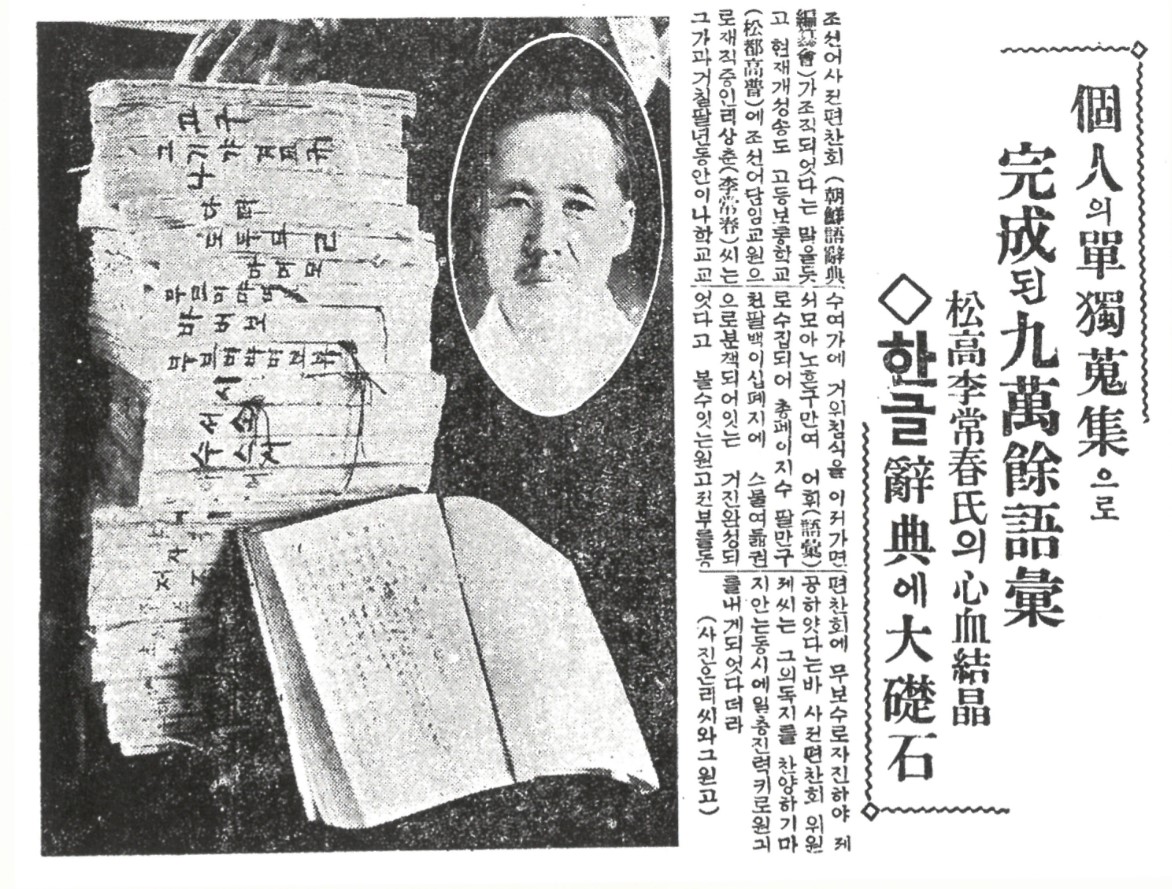 個人의單獨蒐集으로
完成된九萬餘語彙
松高李常春氏의心血結晶
◇한글辭典에大礎石
조선어사뎐편찬회(朝鮮語辭典
編纂會)가조직되엇다는 말을듯
고 현재개성송도 고등보통학교
(松都高普)에조선어담임교원으
로재직중인리상춘(李常春)씨는
그가과거칠팔년동안이나학교교
수여가에 거위침식을 이저가면
서모아노흔구만여 어휘(語彙)
로수집되어 총페이지수 팔만구
천팔백이십폐지에 스물여듧권
으로분책되어잇는 거진완성되
엇다고 볼수잇는원고전부를동
편찬회에 무보수로자진하야 제
공하얏다는바 사뎐편찬회 위원
제씨는 그의독지를 찬양하기마
지안는동시에일층진력키로원긔
를내게되엇다더라
(사진은리씨와그원고)